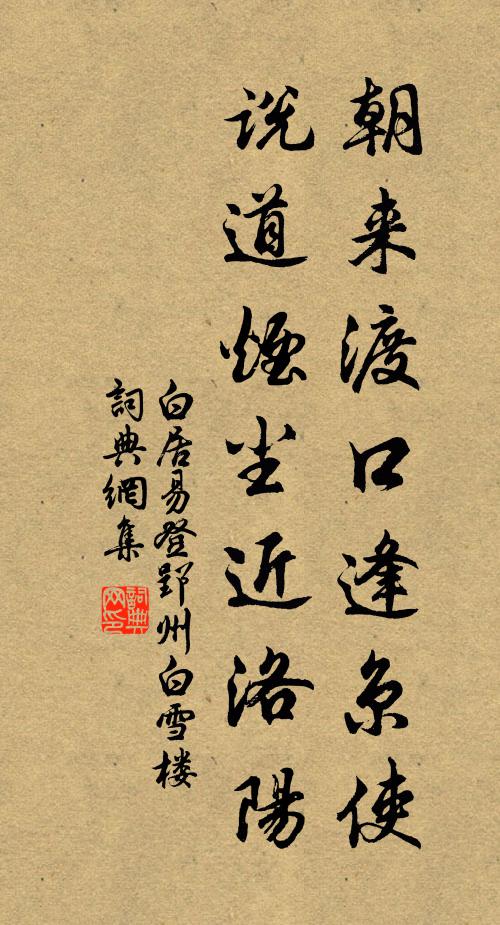 朝来渡口逢京使
说道煙尘近洛陽
白居易登郢州白雪楼
詞典網集
詞典网印